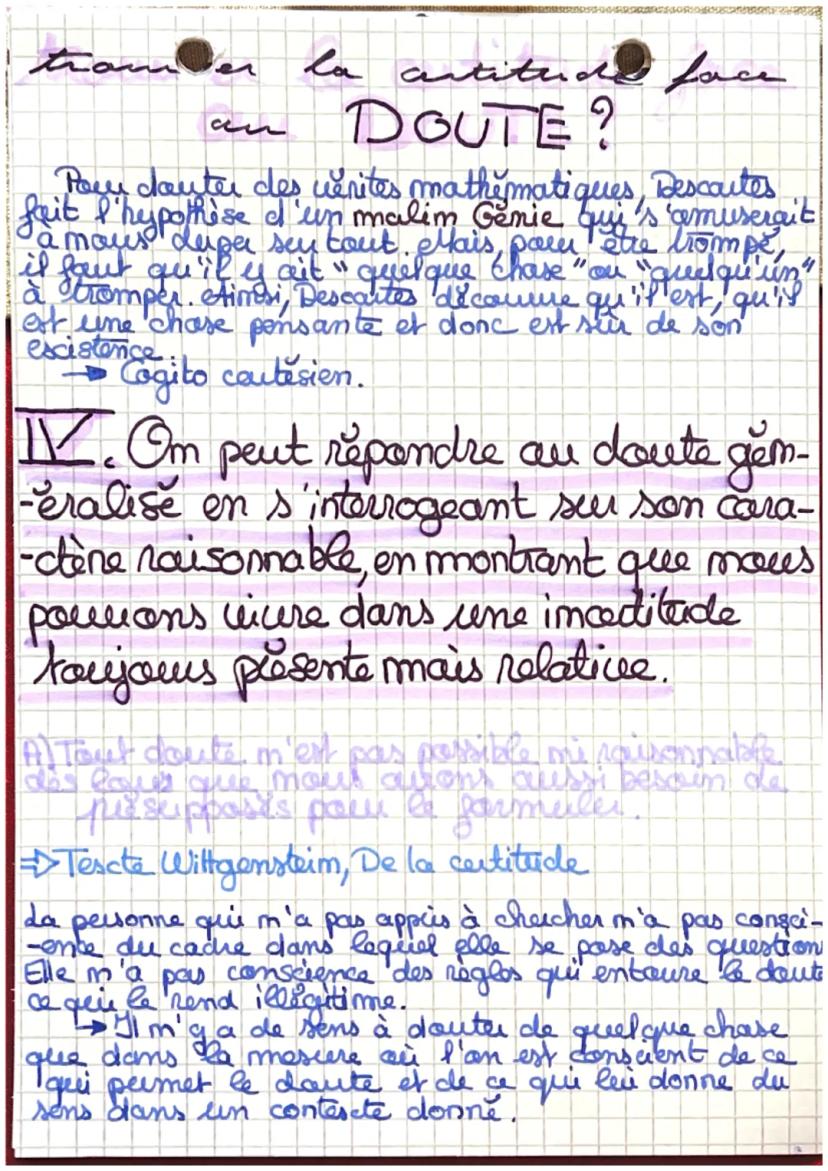 trouver la certitude face
au DOUTE ?
Pour douter des vérites mathématiques, Descartes
fait l'hypothèse d'un malin Génie qui s'amuserait
à nous duper sur tout. Mais, pour être trompé,
il faut qu'il y ait "quelque chose" ou "quelqu'un"
à tromper. Ainsi, Descartes découvre qu'il est, qu'il
est une chose pensante et donc est sûr de son
existence.
→ Cogito cartésien.
IV. On peut répondre au doute gén-
-éralisé en s'interrogeant sur son cara-
-ctère raisonnable, en montrant que nous
pouvons vivre dans une incertitude
toujours présente mais relative.
A) Tout doute n'est pas possible ni raisonnable
dès lors que nous avons aussi besoin de
présupposés pour le formuler.
⇒ Texte Wittgenstein, De la certitude
La personne qui n'a pas appris à chercher n'a pas consci-
-ence du cadre dans lequel elle se pose des question
Elle n'a pas conscience des règles qui entoure le doute
ce qui le rend illégitime.
↳ Il n'y a de sens à douter de quelque chose
que dans la mesure où l'on est conscient de ce
qui permet le doute et de ce qui lui donne du
sens dans un contexte donné.